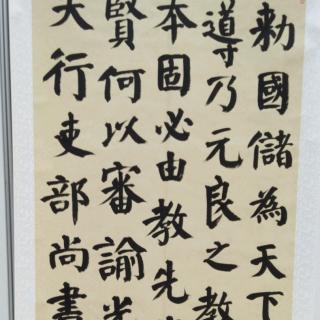 勅國儲為天下
導乃元良之教
本固必由教先
賢何以審諭光
大行吏部尚書